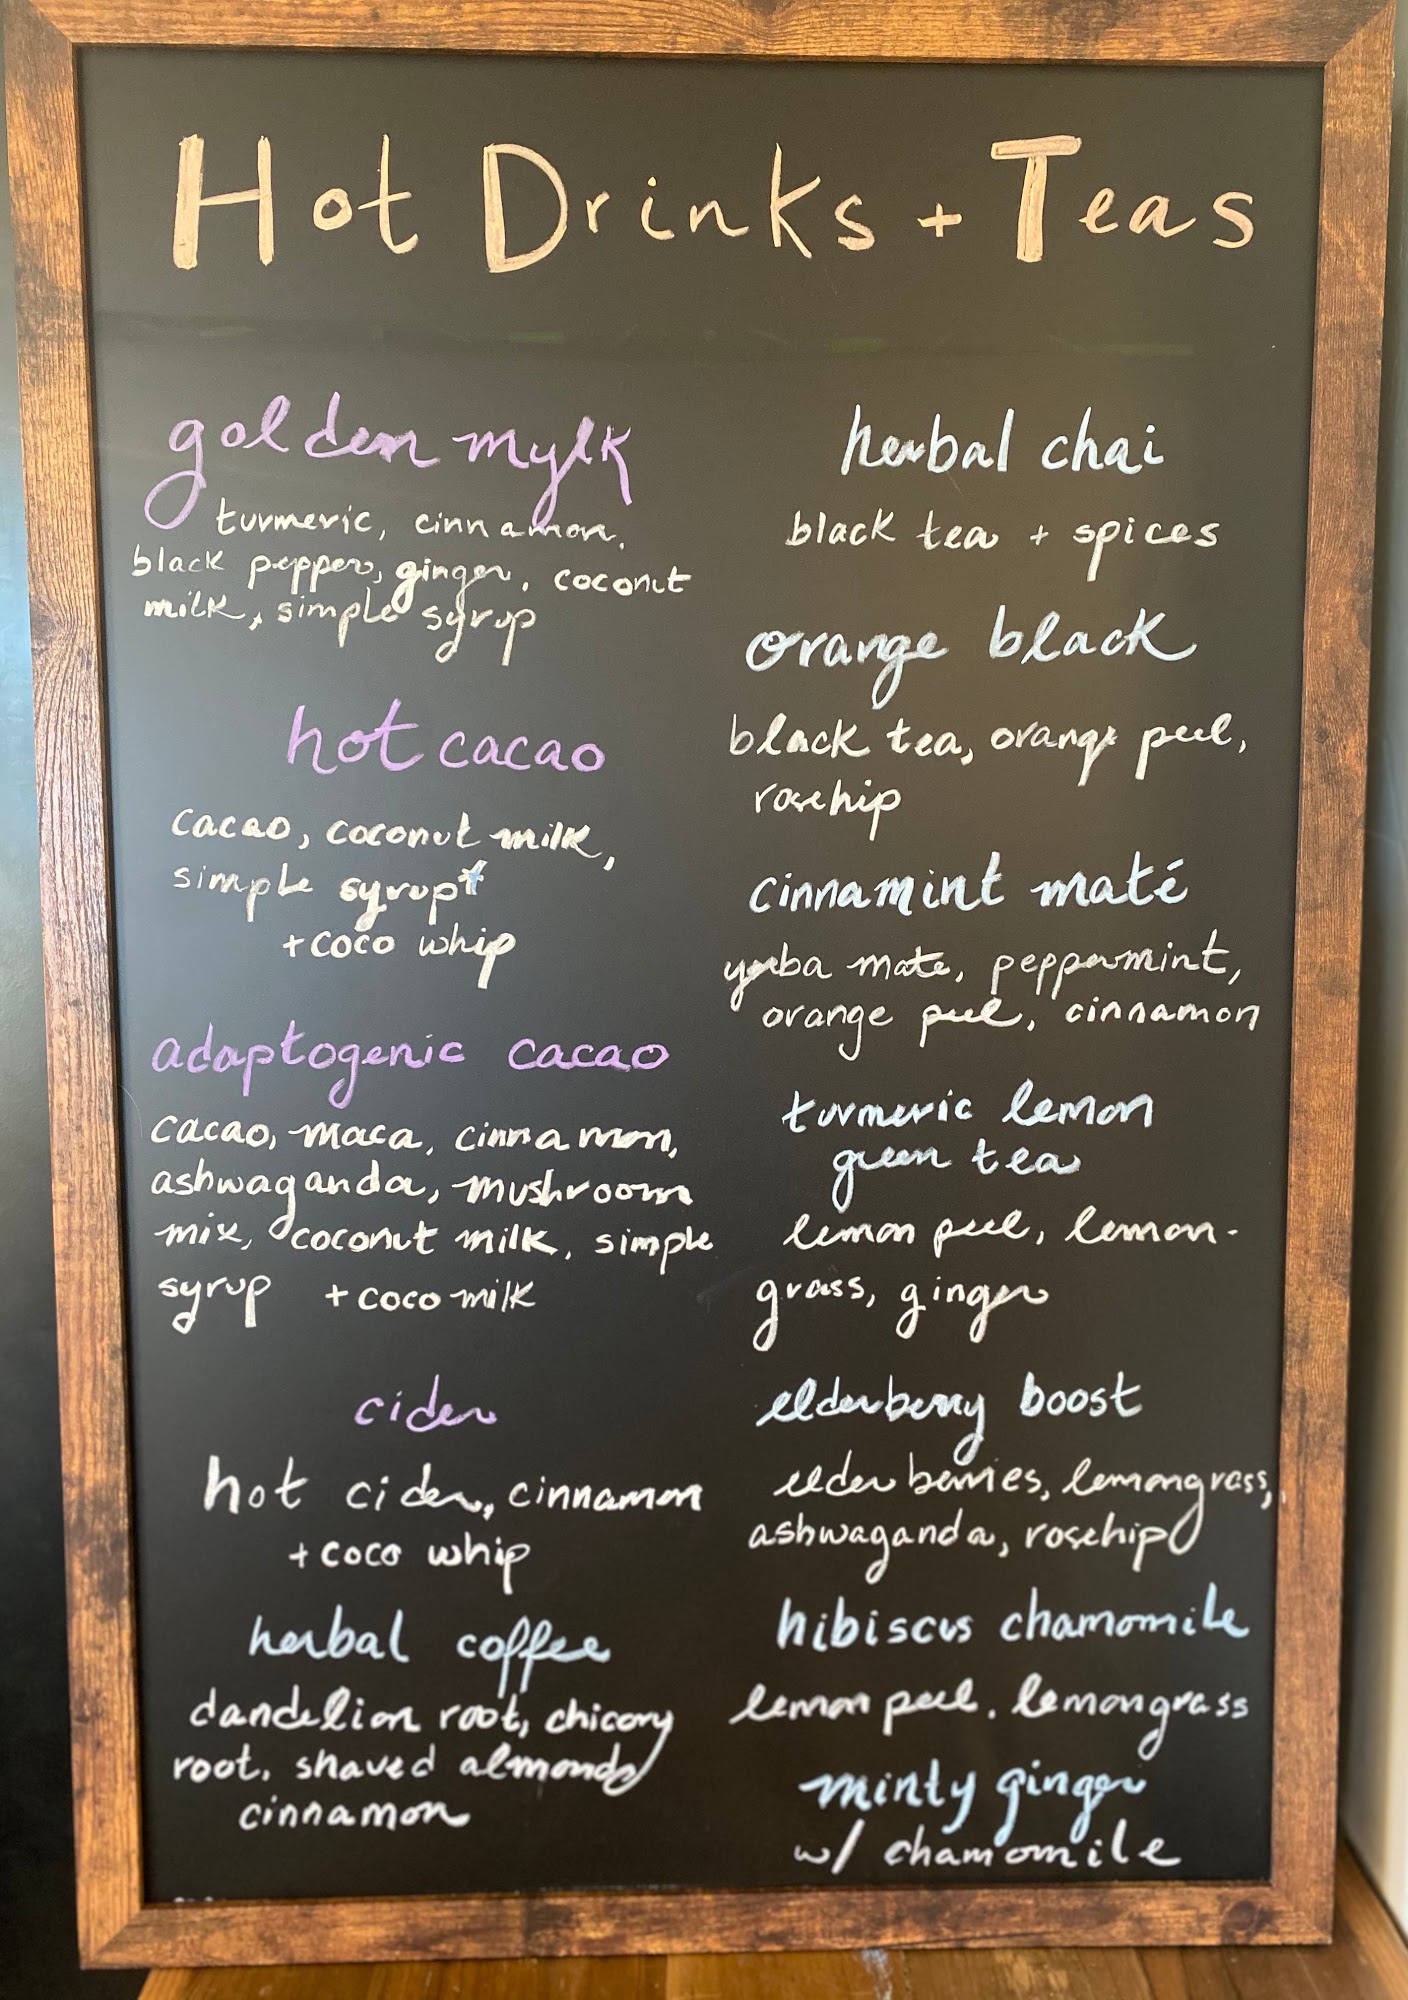 Hot Drinks + Teas
golden mylk
turmeric, cinnamon,
black pepper, ginger, coconut
milk, simple syrup
hot cacao
cacao, coconut milk,
simple syrup*
+ coco whip
adaptogenic cacao
cacao, maca, cinnamon,
ashwaganda, mushroom
mix, coconut milk, simple
syrup + coco milk
cider
hot cider, cinnamon
+ coco whip
herbal coffee
dandelion root, chicory
root, shaved almonds
cinnamon
herbal chai
black tea + spices
orange black
black tea, orange peel,
rosehip
cinnamint maté
yerba mate, peppermint,
orange peel, cinnamon
turmeric lemon
green tea
lemon peel, lemon-
grass, ginger
elderberry boost
elder berries, lemongrass,
ashwaganda, rosehip
hibiscus chamomile
lemon peel, lemongrass
minty ginger
w/ chamomile